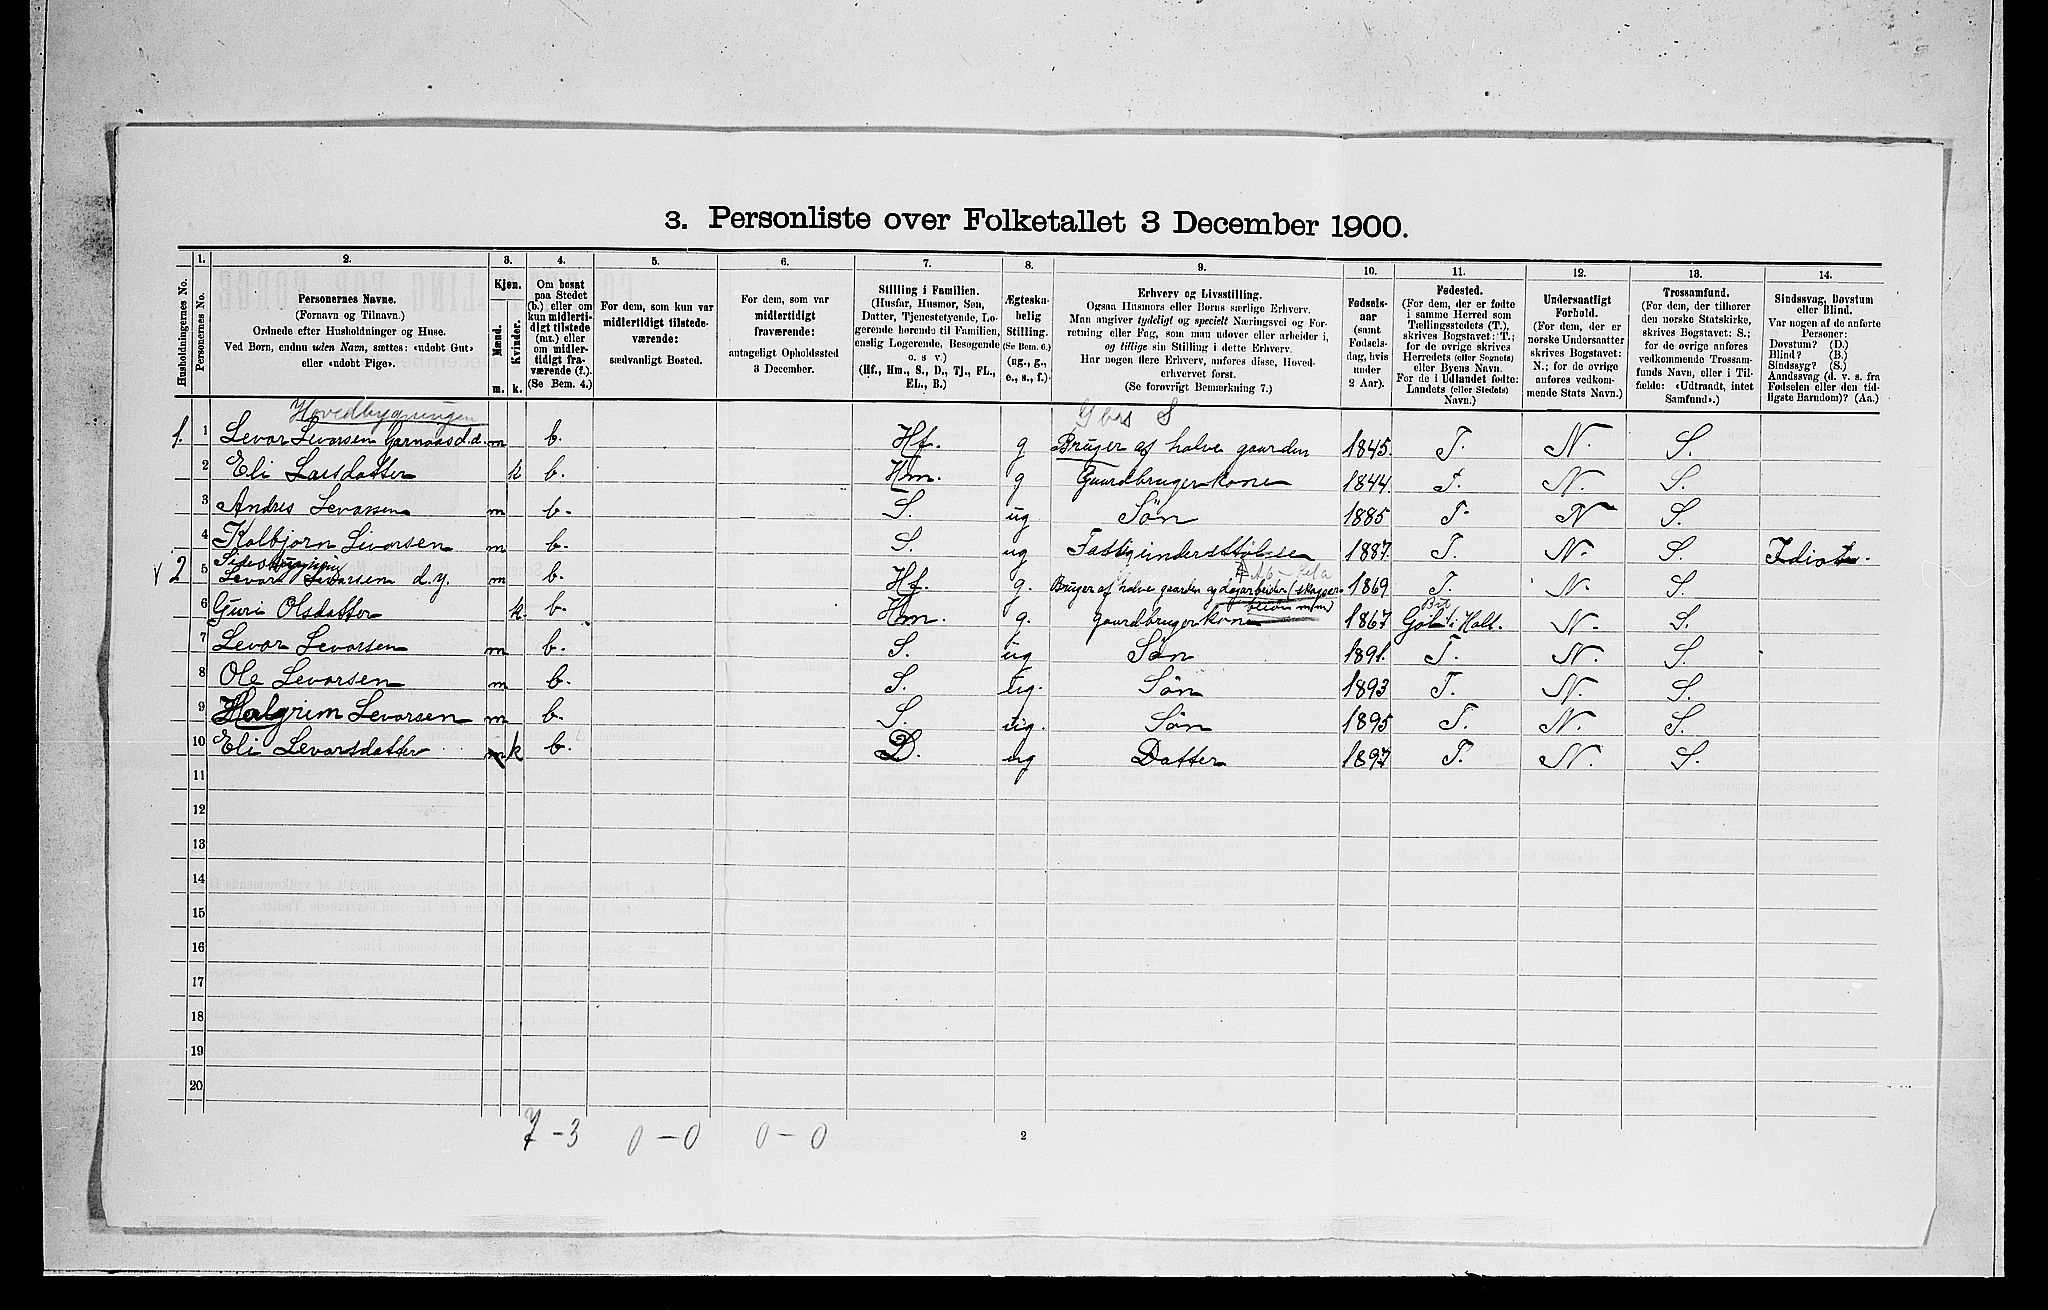 3. Personliste over Folketallet 3 December 1900.
1. 2. 3. 4. 5. 6. 7. 8. 9. 10. 11. 12. 13. 14.
Husholdningernes No.
Personernes No.
Personernes Navne.
(Fornavn og Tilnavn.)
Ordnede efter Husholdninger og Huse.
Ved Børn, endnu uden Navn, sættes: «udøbt Gut»
eller «udøbt Pige».
Kjøn.
Mænd.
Kvinder.
m. k.
Om bosat
paa Stedet
(b.) eller om
kun midlerti-
digt tilstede
(mt.) eller
om midler-
tidigt fra-
værende (f.).
(Se Bem. 4.)
For dem, som kun var
midlertidigt tilstede-
værende:
sædvanligt Bosted.
For dem, som var
midlertidigt
fraværende:
antageligt Opholdssted
3 December.
Stilling i Familien.
(Husfar, Husmor, Søn,
Datter, Tjenestetyende, Lo-
gerende hørende til Familien,
enslig Logerende, Besøgende
o. s. v.)
(Hf., Hm., S., D., Tj., FL.,
EL., B.)
Ægteska-
belig
Stilling.
(Se Bem. 6.)
(ug., g.,
e., s., f.).
Erhverv og Livsstilling.
Ogsaa Husmors eller Børns særlige Erhverv.
Man angiver tydeligt og specielt Næringsvei og For-
retning eller Fag, som man udøver eller arbeider i,
og tillige sin Stilling i dette Erhverv.
Har nogen flere Erhverv, anføres disse, Hoved-
erhvervet først.
(Se forøvrigt Bemerkning 7.)
Fødsels-
aar
(samt
Fødsels-
dag, hvis
under
2 Aar).
Fødested.
(For dem, der er fødte
i samme Herred som
Tællingsstedets (T.),
skrives Bogstavet: T.;
for de øvrige skrives
Herredets (eller Sognets)
eller Byens Navn.
For de i Udlandet fødte:
Landets (eller Stedets)
Navn.)
Undersaatligt
Forhold.
(For dem, der er
norske Undersaatter
skrives Bogstavet:
N.; for de øvrige
anføres vedkom-
mende Stats Navn.)
Trossamfund.
(For dem, der tilhører
den norske Statskirke,
skrives Bogstavet: S.;
for de øvrige anføres
vedkommende Trossam-
funds Navn, eller i Til-
fælde: «Udtraadt, intet
Samfund».)
Sindssvag, Døvstum
eller Blind.
Var nogen af de anførte
Personer:
Døvstum? (D.)
Blind? (B.)
Sindssyg? (S.)
Aandssvag (d. v. s. fra
Fødselen eller den tid-
ligste Barndom)? (Aa.)
Hovedbygningen
1. 1 Levor Levorsen Garnaas d.æ. m b. Hf. g Bruger af halve gaarden 1845. T. N. S.
2 Eli Larsdatter k b. Hm. g Gaardbrugerkone 1844. T. N. S.
3 Andres Levorsen m b. S. ug Søn 1885 T N S.
4 Kolbjørn Livorsen m b. S. ug Fattigunderstøttelse 1887. T. N. S. Idiot.
Sidesbygning
2 5 Levor Levorsen d.y. m b. Hf. g. Bruger af halve gaarden og dagarbeider 1869 T. N. S.
6 Guri Olsdatter k. b. Hm. g. gaardbrugerkone 1867 Gol i Hall. N. S.
7 Levor Levorsen m b. S. ug Søn 1891. T. N. S.
8 Ole Levorsen m b. S. ug. Søn 1893 T. N. S.
9 Halgrim Levorsen m b. S. ug. Søn 1895 T. N. S.
10 Eli Levorsdatter k b. D. ug Datter 1897 T. N. S.
11
12
13
14
15
16
17
18
19
20
7 – 3 0 – 0 0 – 0
2